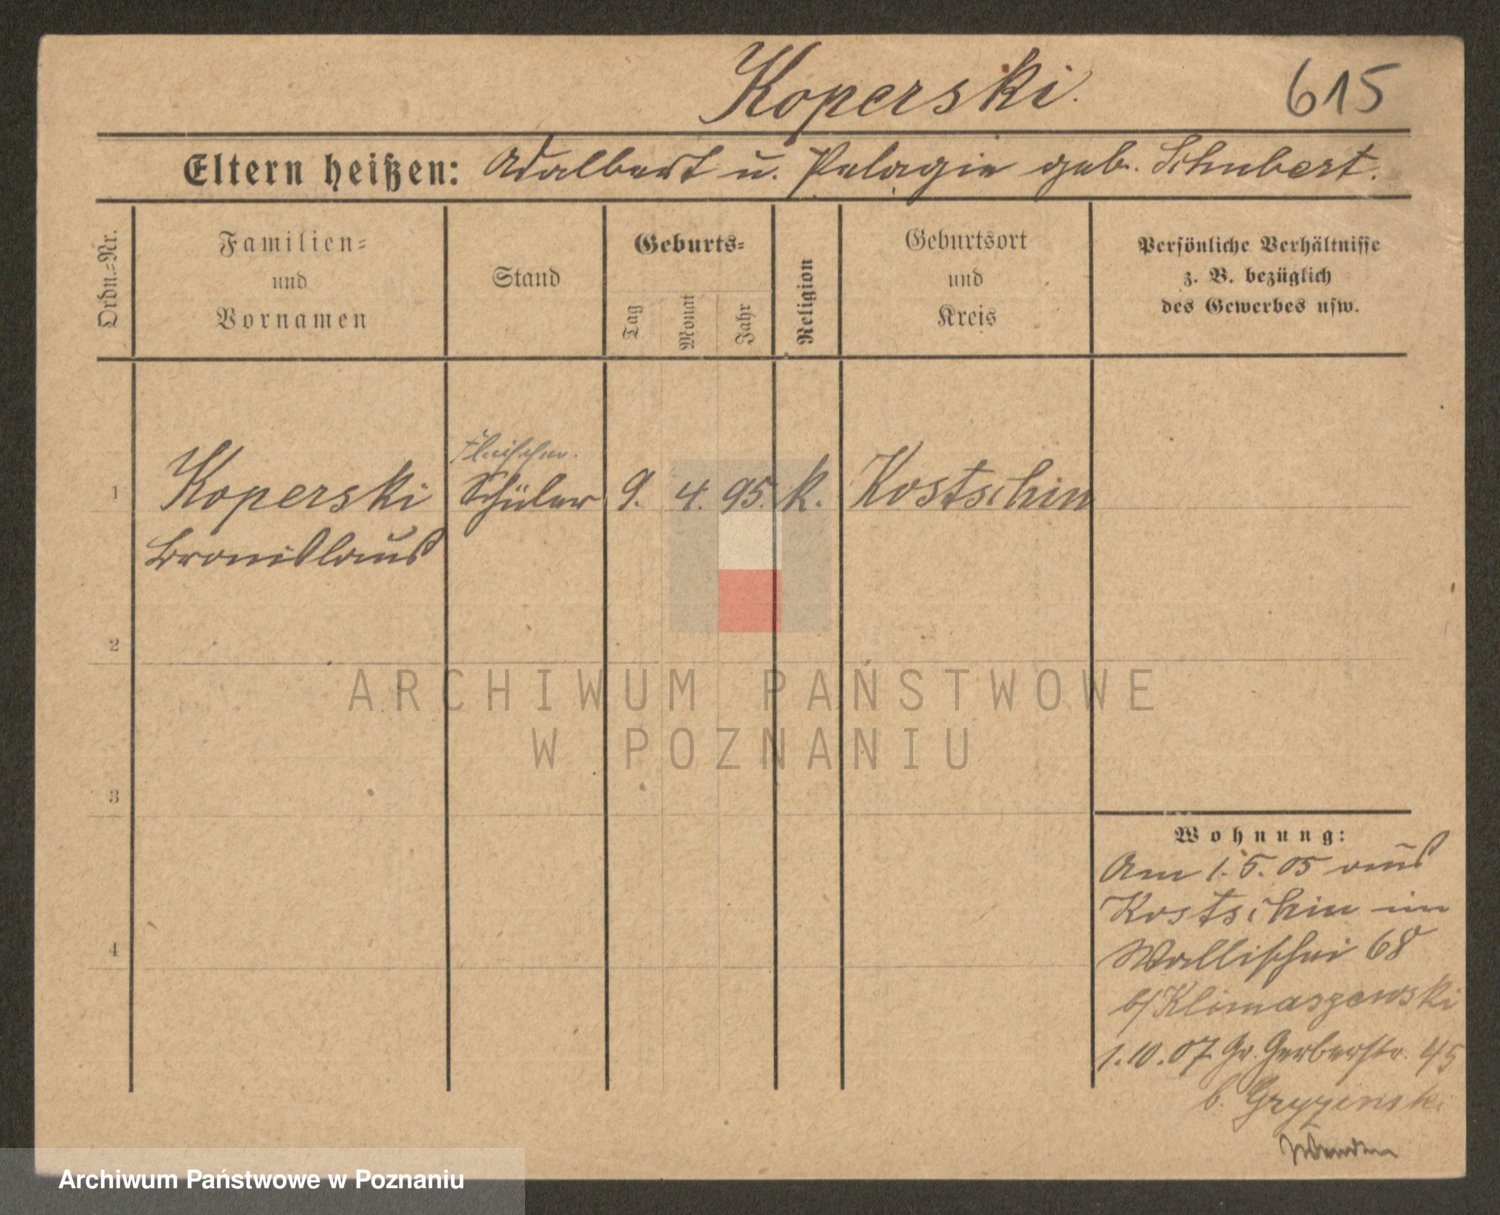 Koperski. 615
Eltern heißen: Adalbert u. Pelagie geb. Schubert.
Ordn.-Nr.
Familien-
und
Vornamen
Stand
Geburts-
Tag
Monat
Jahr
Religion
Geburtsort
und
Kreis
Persönliche Verhältnisse
z. B. bezüglich
des Gewerbes usw.
Fleischer.
1 Koperski Schüler 9. 4. 95. k. Kostschin
Bronislaus
2
ARCHIWUM PAŃSTWOWE
W POZNANIU
3
Wohnung:
Am 1.5.05 aus
Kostschin in
4
Wallischei 68
b/ Klimaszewski
1.10.07 Gr. Gerberstr. 45
b. Gryzinski
Wenden
Archiwum Państwowe w Poznaniu